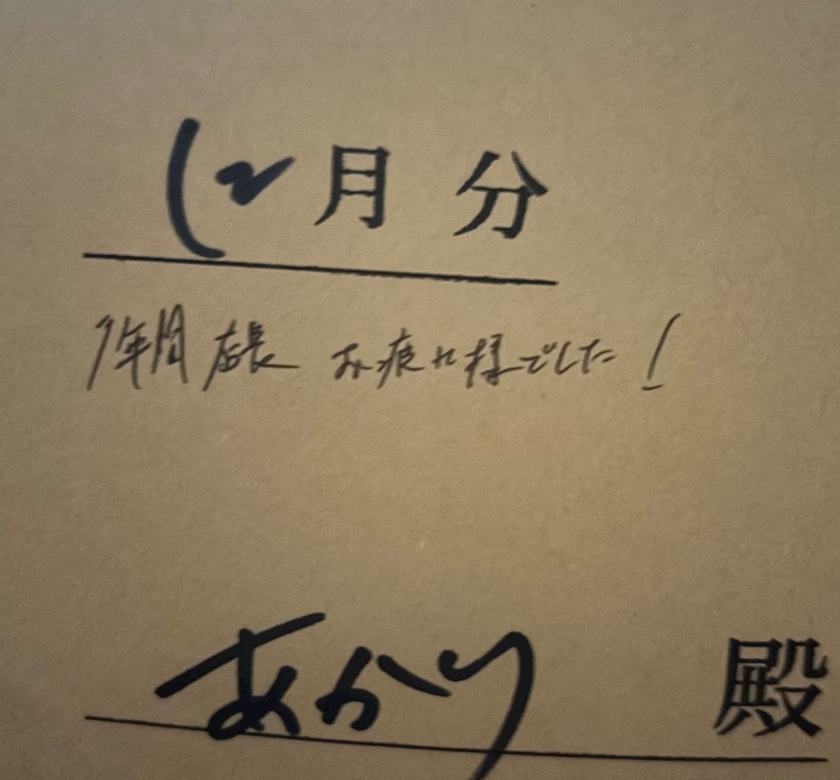 12月分
1年間 店長 お疲れ様でした!
あかり 殿